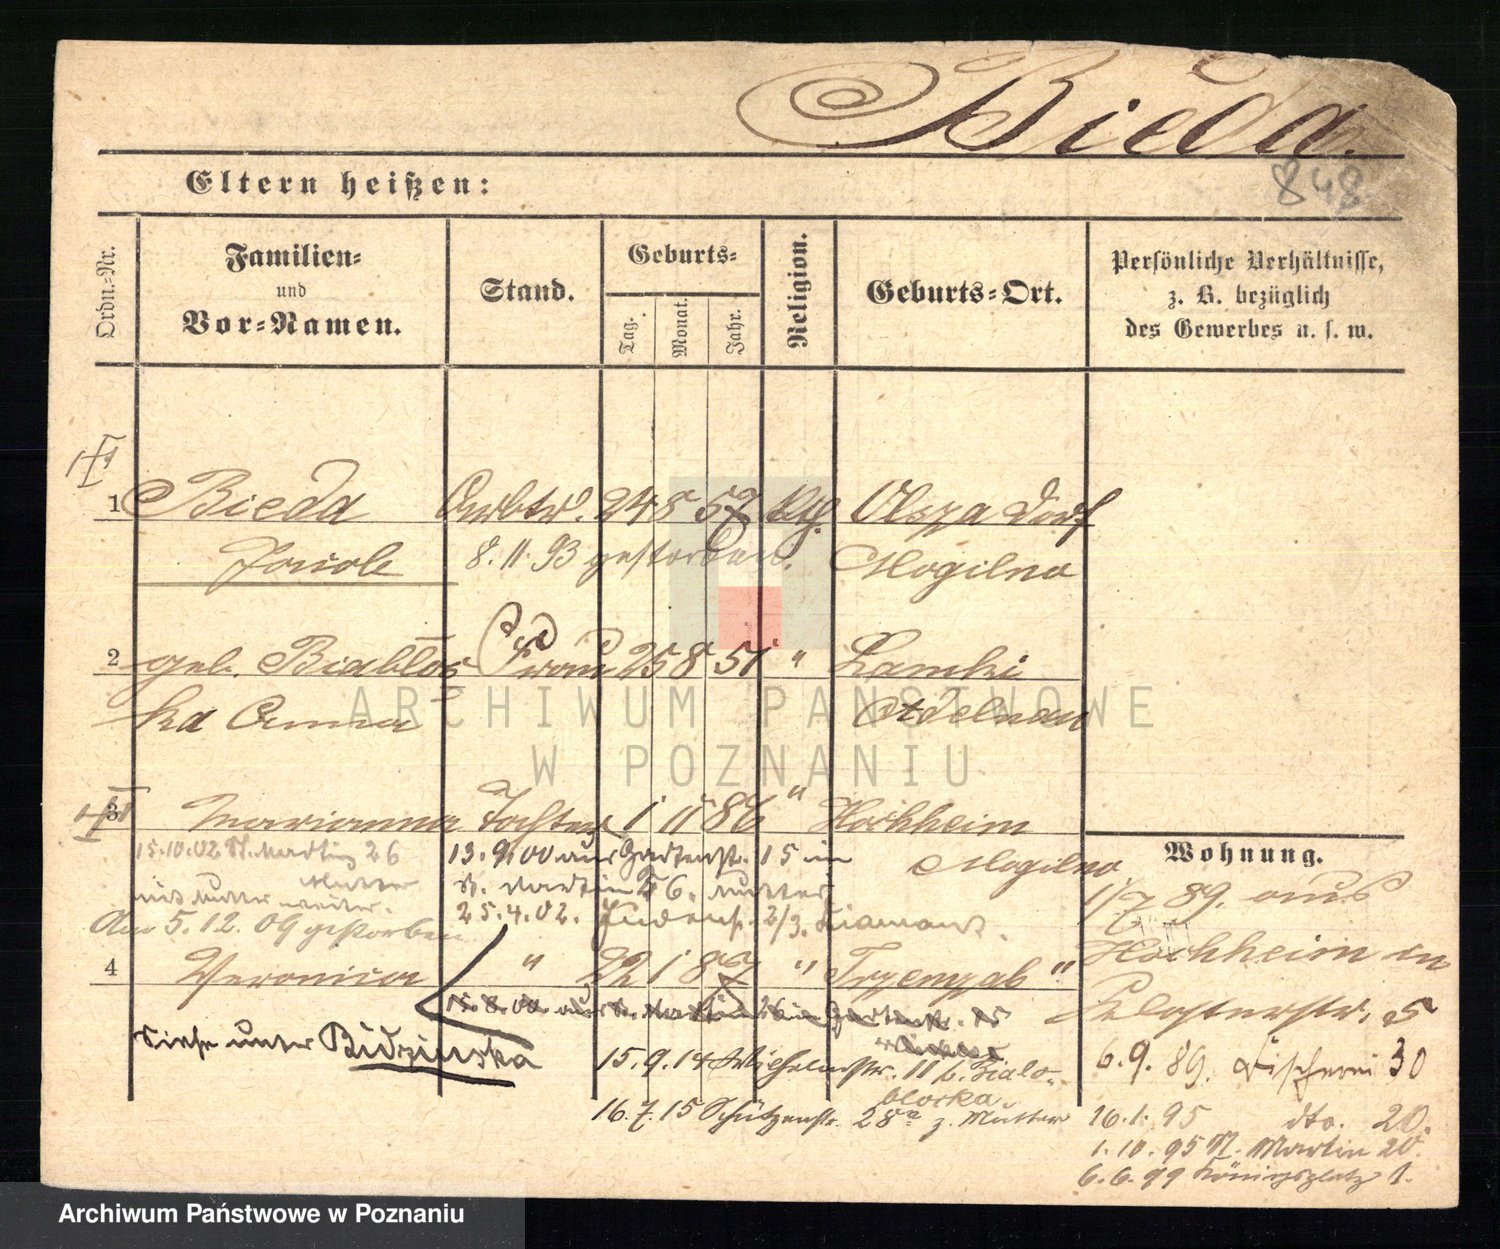 Bieda.
Eltern heißen:
848
Ordn.-Nr.
Familien-
und
Vor-Namen.
Stand.
Geburts-
Tag.
Monat.
Jahr.
Religion.
Geburts-Ort.
Persönliche Verhältnisse,
z. B. bezüglich
des Gewerbes u. s. w.
1 Bieda Arbtr. 24 8 57 kth. Olsza Dorf
Jacob 8. 11. 93 gestorben. Mogilno
2 geb. Biablos Frau 25 8 51 " Lamki
ka Anna Adelnau
3 Marianna Tochter 1 11 86 " Hochheim
Mogilno
15.10.02 St. Martin 26 13.9.00 aus Gartenstr. 15 in
mit Mutter weiter. St. Martin 26. Mutter
25.4.02. 2/3.
Am 5.12.09 gestorben
4 Veronica " 22 1 87 " Trzemzal "
15.8.00 aus St. Martin 26 in Gartenstr. 15
Siehe unter Bidzinska
15.9.14 Wilhelmstr. 11 b. Bialo-
blocka
16.7.15 Schützenstr. 28a z. Mutter
Wohnung.
1/7 89. aus
Hochheim in
Klosterstr. 5
6.9.89. Fischerei 30
16.1.95 dto. 20.
1.10.95 St. Martin 20
6.6.99 Königsplatz 1.
ARCHIWUM PAŃSTWOWE
W POZNANIU
Archiwum Państwowe w Poznaniu